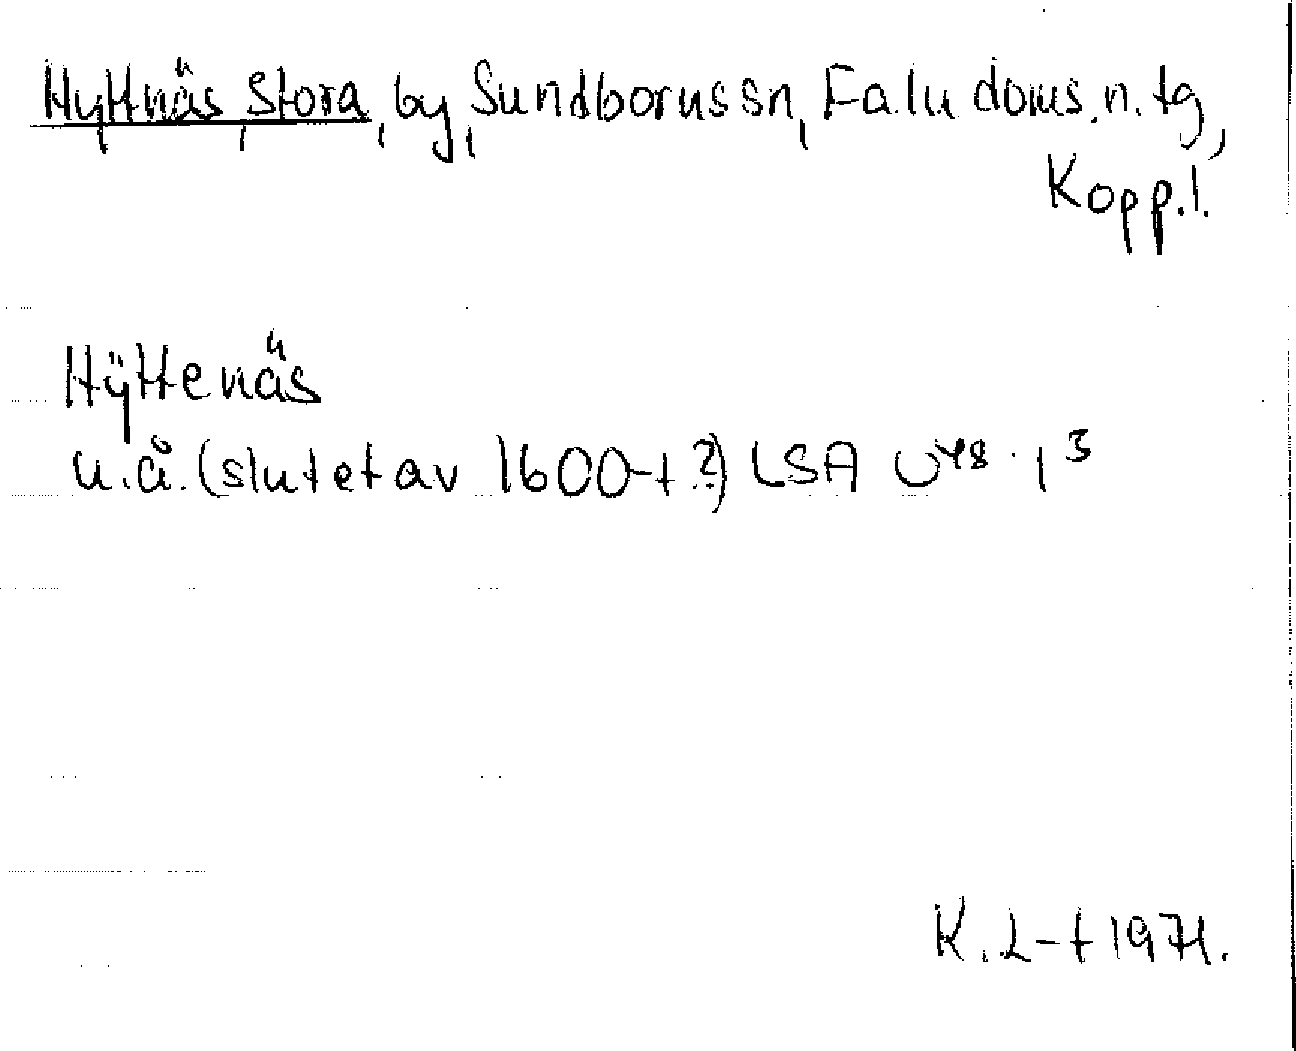 Hyttnäs, Stora, by, Sundborns sn, Falu doms. n. tg,
Kopp. l.
Hÿttenäs
u.å. (slutet av 1600-t ?) LSA U48·1³
K. L-t 1971.